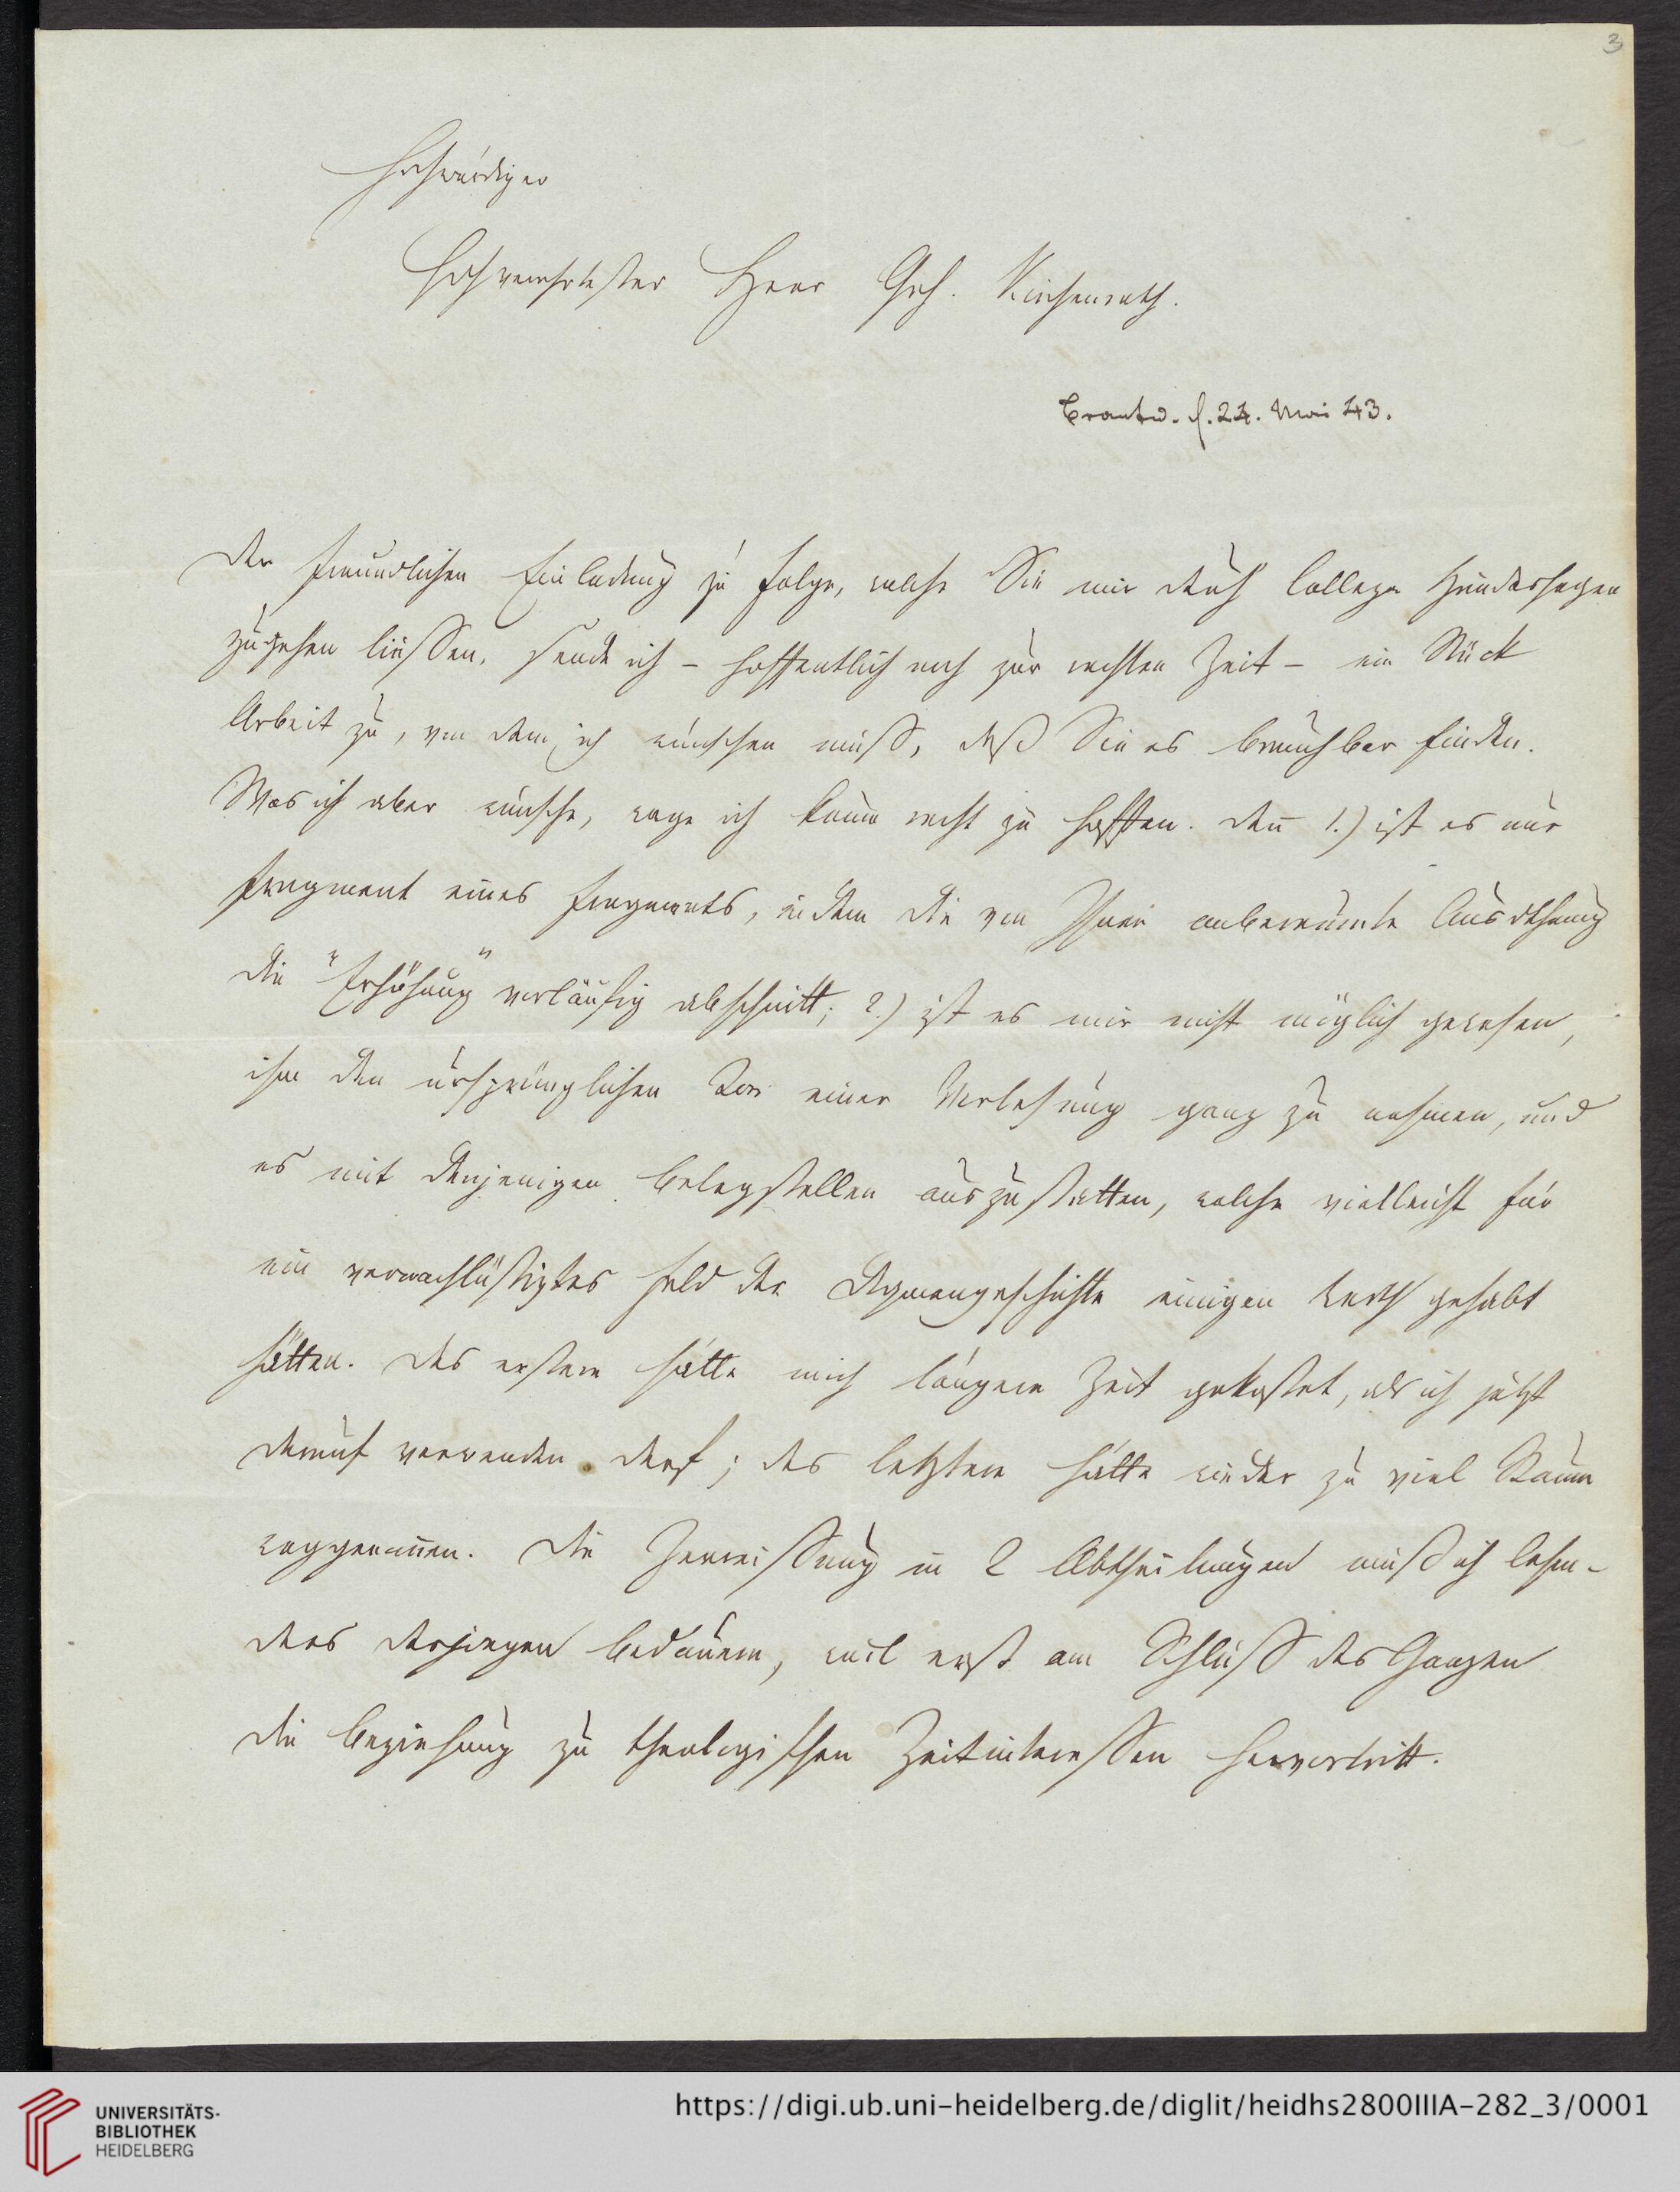 3
Hochwürdiger
Hochverehrtester Herr Geh. Kirchenrath.
Beantw. d. 24. Mai 43.
Der freundlichen Einladung zu Folge, welche Sie mir durch College Hundeshagen
zugehen liessen, sende ich – hoffentlich noch zur rechten Zeit – ein Stück
Arbeit zu, von dem ich wünschen muss, daß Sie es brauchbar finden.
Was ich aber wünsche, wage ich kaum recht zu hoffen. Deñ 1.) ist es nur
Fragment eines Fragments, indem die von Ihnen anberaumte Ausdehnung
die "Erhöhung" vorläufig abschnitt; 2.) ist es mir nicht möglich gewesen,
ihm den ursprünglichen Ton einer Vorlesung ganz zu nehmen, und
es mit denjenigen Belegstellen auszustatten, welche vielleicht für
ein vernachlässigtes Feld der Dogmengeschichte einigen Werth gehabt
hätten. Das erstere hätte mich längere Zeit gekostet, als ich jetzt
darauf verwenden darf; das letztere hätte wieder zu viel Raum
weggenom̅en. Die Zerreissung in 2 Abtheilungen muß ich beson-
ders deswegen bedauern, weil erst am Schluss des Ganzen
die Beziehung zu theologischen Zeitinteressen hervortritt.
UNIVERSITÄTS-
BIBLIOTHEK
HEIDELBERG
https://digi.ub.uni-heidelberg.de/diglit/heidhs2800IIIA-282_3/0001